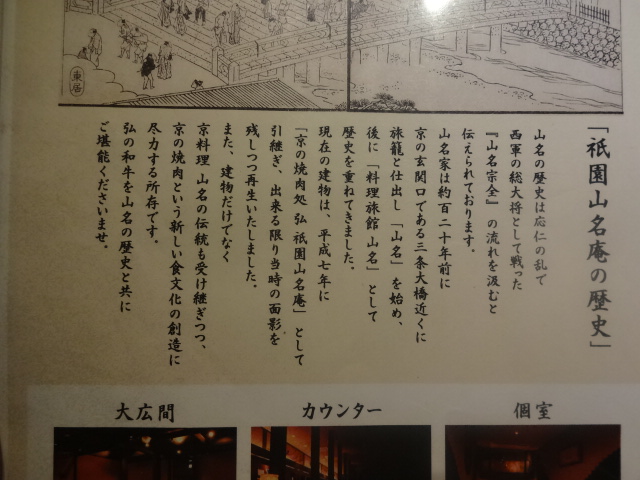 東居
「祇園山名庵の歴史」
山名の歴史は応仁の乱で
西軍の総大将として戦った
『山名宗全』の流れを汲むと
伝えられております。
山名家は約百二十年前に
京の玄関口である三条大橋近くに
旅籠と仕出し「山名」を始め、
後に「料理旅館 山名」として
歴史を重ねてきました。
現在の建物は、平成七年に
「京の焼肉処 弘 祇園山名庵」として
引継ぎ、出来る限り当時の面影を
残しつつ再生いたしました。
また、建物だけでなく
京料理 山名の伝統も受け継ぎつつ、
京の焼肉という新しい食文化の創造に
尽力する所存です。
弘の和牛を山名の歴史と共に
ご堪能くださいませ。
大広間
カウンター
個室